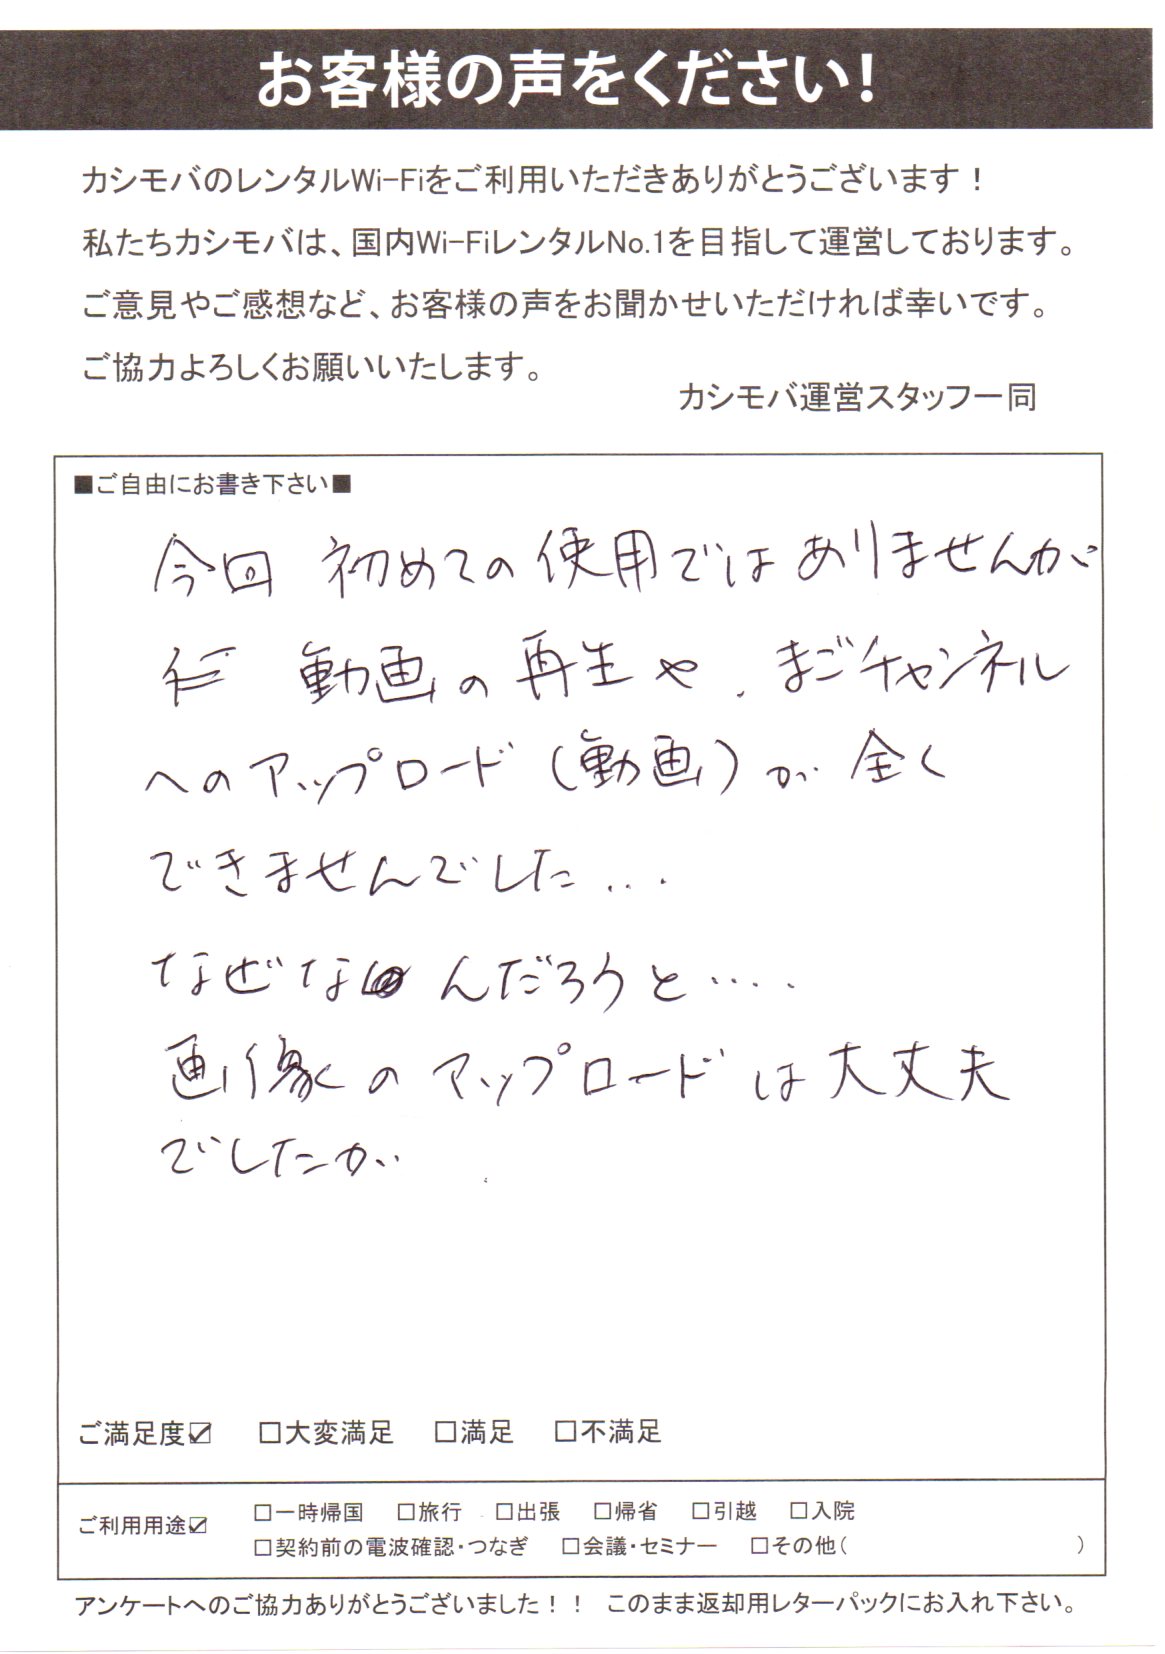 お客様の声をください!
カシモバのレンタルWi-Fiをご利用いただきありがとうございます！
私たちカシモバは、国内Wi-FiレンタルNo.1を目指して運営しております。
ご意見やご感想など、お客様の声をお聞かせいただければ幸いです。
ご協力よろしくお願いいたします。
カシモバ運営スタッフ一同
■ご自由にお書き下さい■
今回 初めての使用ではありませんが
動画の再生や、まごチャンネル
へのアップロード（動画）が全く
できませんでした...
なぜなんだろうと....
画像のアップロードは大丈夫
でしたが
ご満足度☑ □大変満足 □満足 □不満足
ご利用用途☑ □一時帰国 □旅行 □出張 □帰省 □引越 □入院
□契約前の電波確認・つなぎ □会議・セミナー □その他（ ）
アンケートへのご協力ありがとうございました！！ このまま返却用レターパックにお入れ下さい。